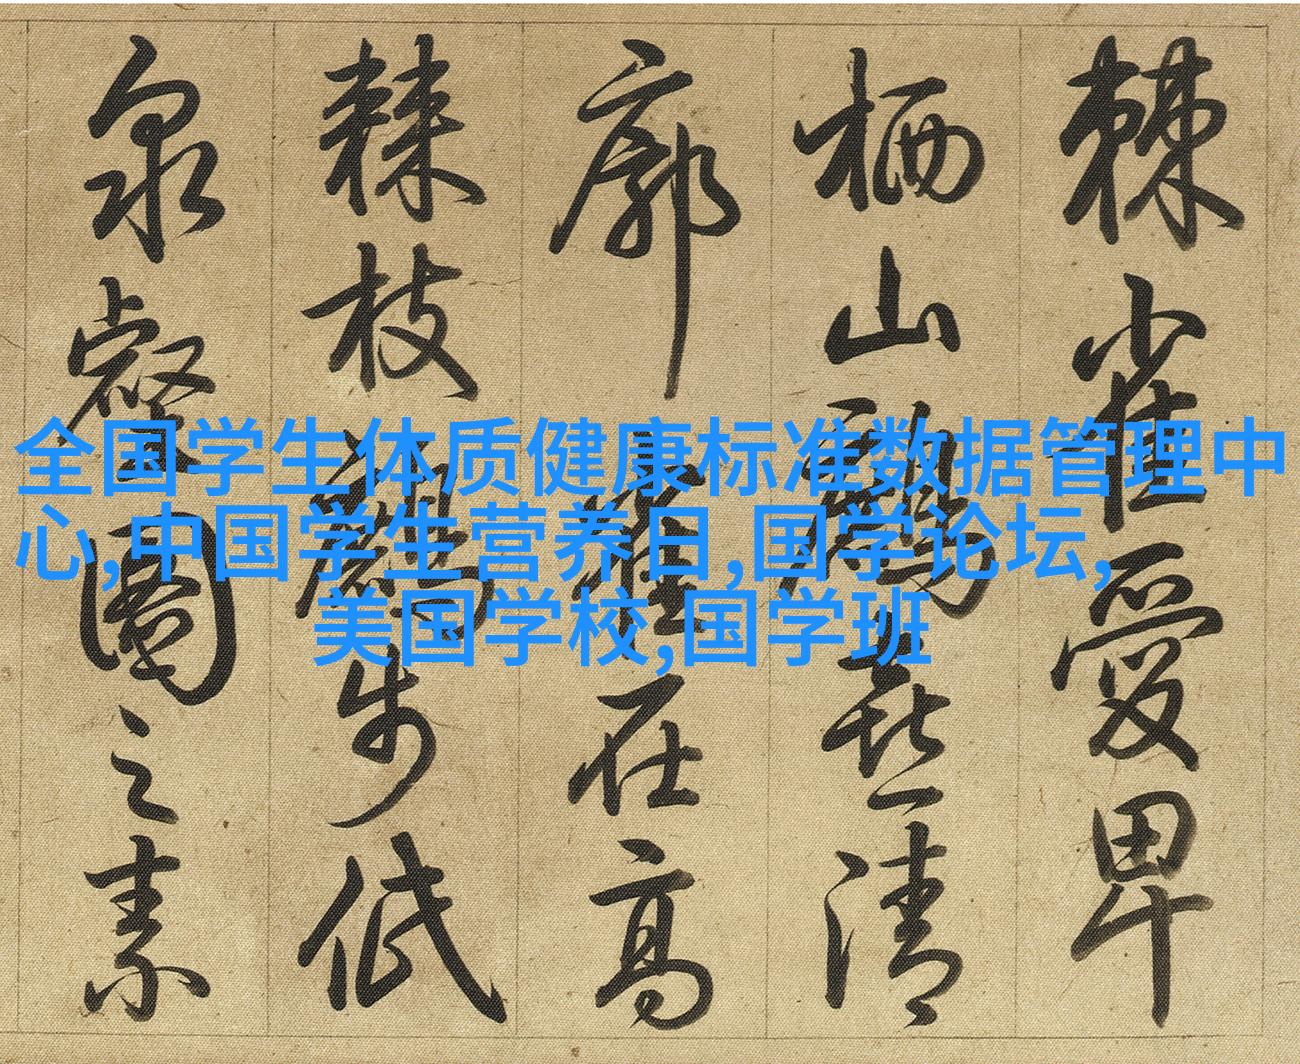 全国学生体质健康标准数据管理中
心,中国学生营养日,国学论坛,
美国学校,国学班
棘雀愛卑
栖山鶴喜清
廓雖在高
棘枝鶴步低
泉壑之素